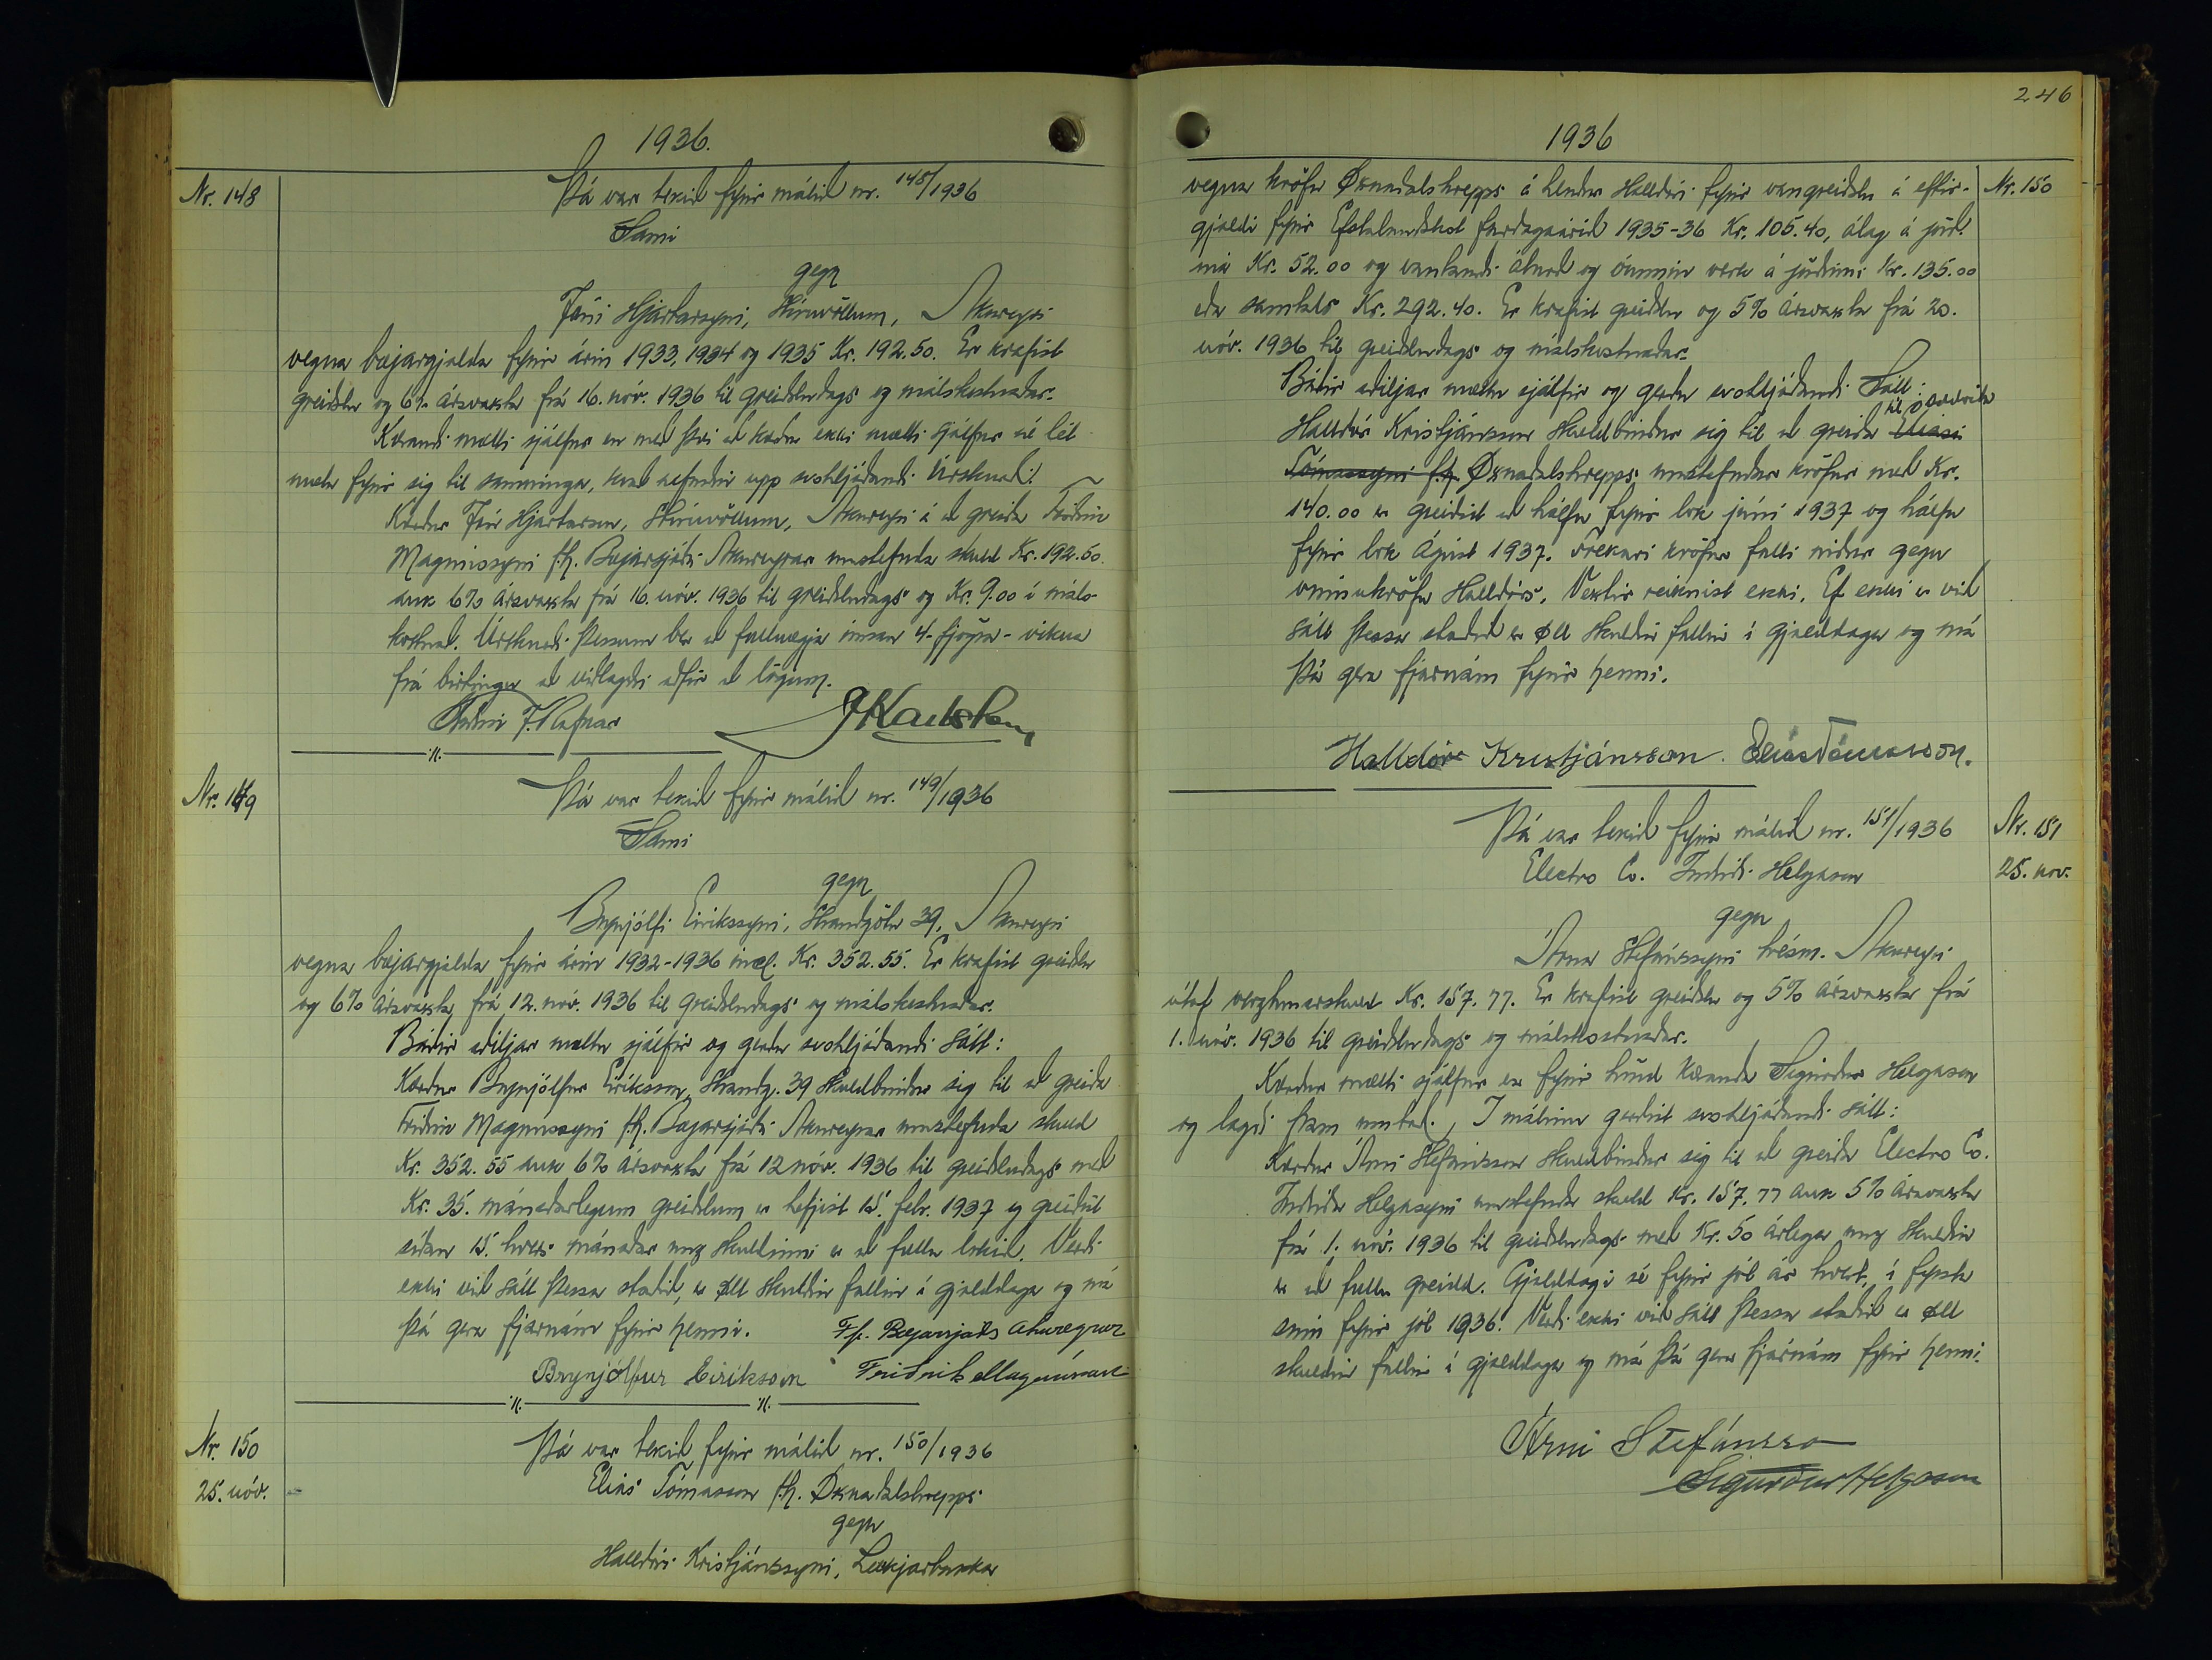 1936.
Nr. 148
Þá var tekið fyrir málið nr. 148/1936
Sami
gegn
Jóni Hjartarsyni, Akureyri
vegna bæjargjalda fyrir árin 1933, 1934 og 1935 Kr. 192.50. Er krafist
greiðslu og 6% ársvaxta frá 16. nóv. 1936 til greiðsludags og málskostnaðar.
Kærandi mætti sjálfur en með því að kærður ekki mætti sjálfur né lét
mæta fyrir sig til samninga, kvað nefndin upp svohljóðandi Úrskurð:
Kærður Jón Hjartarson, Akureyri á að greiða Friðrik
Magnússyni f.h. Bæjarsjóðs Akureyrar umstefnda skuld Kr. 192.50
auk 6% ársvaxta frá 16. nóv. 1936 til greiðsludags og Kr. 9.00 í máls-
kostnað. Úrskurði þessum ber að fullnægja innan 4-fjögra-vikna
frá birtingu að viðlagðri aðför að lögum.
J Karlsson
Nr. 149
Þá var tekið fyrir málið nr. 149/1936
Sami
gegn
Brynjólfi Eiríkssyni, Strandgötu 39, Akureyri
vegna bæjargjalda fyrir árin 1932-1936 incl. Kr. 352.55. Er krafist greiðslu
og 6% ársvaxta frá 12. nóv. 1936 til greiðsludags og málskostnaðar.
Báðir aðiljar mættu sjálfir og gerðu svohljóðandi sátt:
Kærður Brynjólfur Eiríksson, Strandg. 39 skuldbindur sig til að greiða
Friðrik Magnússyni f.h. Bæjarsjóðs Akureyrar umstefnda skuld
Kr. 352.55 auk 6% ársvaxta frá 12 nóv. 1936 til greiðsludags með
Kr. 35. mánaðarlegum greiðslum er hefjist 15. febr. 1937 og greiðist
síðan 15. hvers mánaðar unz skuldinni er að fullu lokið. Verði
ekki við sátt þessa staðið, er öll skuldin fallin í gjalddaga og má
þá gera fjárnám fyrir henni.
F.h. Bæjarsjóðs Akureyrar
Brynjólfur Eiríksson Friðrik Magnússon
Nr. 150
25. nóv.
Þá var tekið fyrir málið nr. 150/1936
Elías Tómasson f.h. Öxnadalshrepps
gegn
Halldóri Kristjánssyni,
246
1936
Nr. 150
vegna kröfu Öxnadalshrepps á hendur Halldóri fyrir vangreiðslu á eftir-
gjaldi fyrir Efstalandskot fardagaárið 1935-36 Kr. 105.40, álag á jörð-
ina Kr. 52.00 og vantandi áburð og óunnin verk á jörðinni Kr. 135.00
eða samtals Kr. 292.40. Er krafist greiðslu og 5% ársvaxta frá 20.
nóv. 1936 til greiðsludags og málskostnaðar.
Báðir aðiljar mættu sjálfir og gerðu svohljóðandi Sátt:
Halldór Kristjánsson skuldbindur sig til að greiða Elíasi
Tómassyni f.h. Öxnadalshrepps umstefndar kröfur með Kr.
140.00 er greiðist að hálfu fyrir lok júní 1937 og hálfu
fyrir lok Ágúst 1937. Frekari kröfur falli niður gegn
vinnukröfu Halldórs. Vextir reiknist ekki. Ef ekki er við
sátt þessa staðið er öll skuldin fallin í gjalddaga og má
þá gera fjárnám fyrir henni.
Halldór Kristjánsson. Elías Tómasson.
Nr. 151
25. nóv.
Þá var tekið fyrir málið nr. 151/1936
Electro Co. Indriði Helgason
gegn
Árna Stefánssyni trésm. Akureyri
útaf verzlunarskuld Kr. 157.77. Er krafist greiðslu og 5% ársvaxta frá
1. nóv. 1936 til greiðsludags og málskostnaðar.
Kærður mætti sjálfur en fyrir hönd kæranda Sigurður Helgason
og lagði fram umboð. Í málinu gerðist svohljóðandi sátt:
Kærður Árni Stefánsson skuldbindur sig til að greiða Electro Co.
Indriða Helgasyni umstefnda skuld Kr. 157.77 auk 5% ársvaxta
frá 1. nóv. 1936 til greiðsludags með Kr. 50 árlega unz skuldin
er að fullu greidd. Gjalddagi sé fyrir jól ár hvert, í fyrsta
sinn fyrir jól 1936. Verði ekki við sátt þessa staðið er öll
skuldin fallin í gjalddaga og má þá gera fjárnám fyrir henni.
Árni Stefánsson
Sigurður Helgason